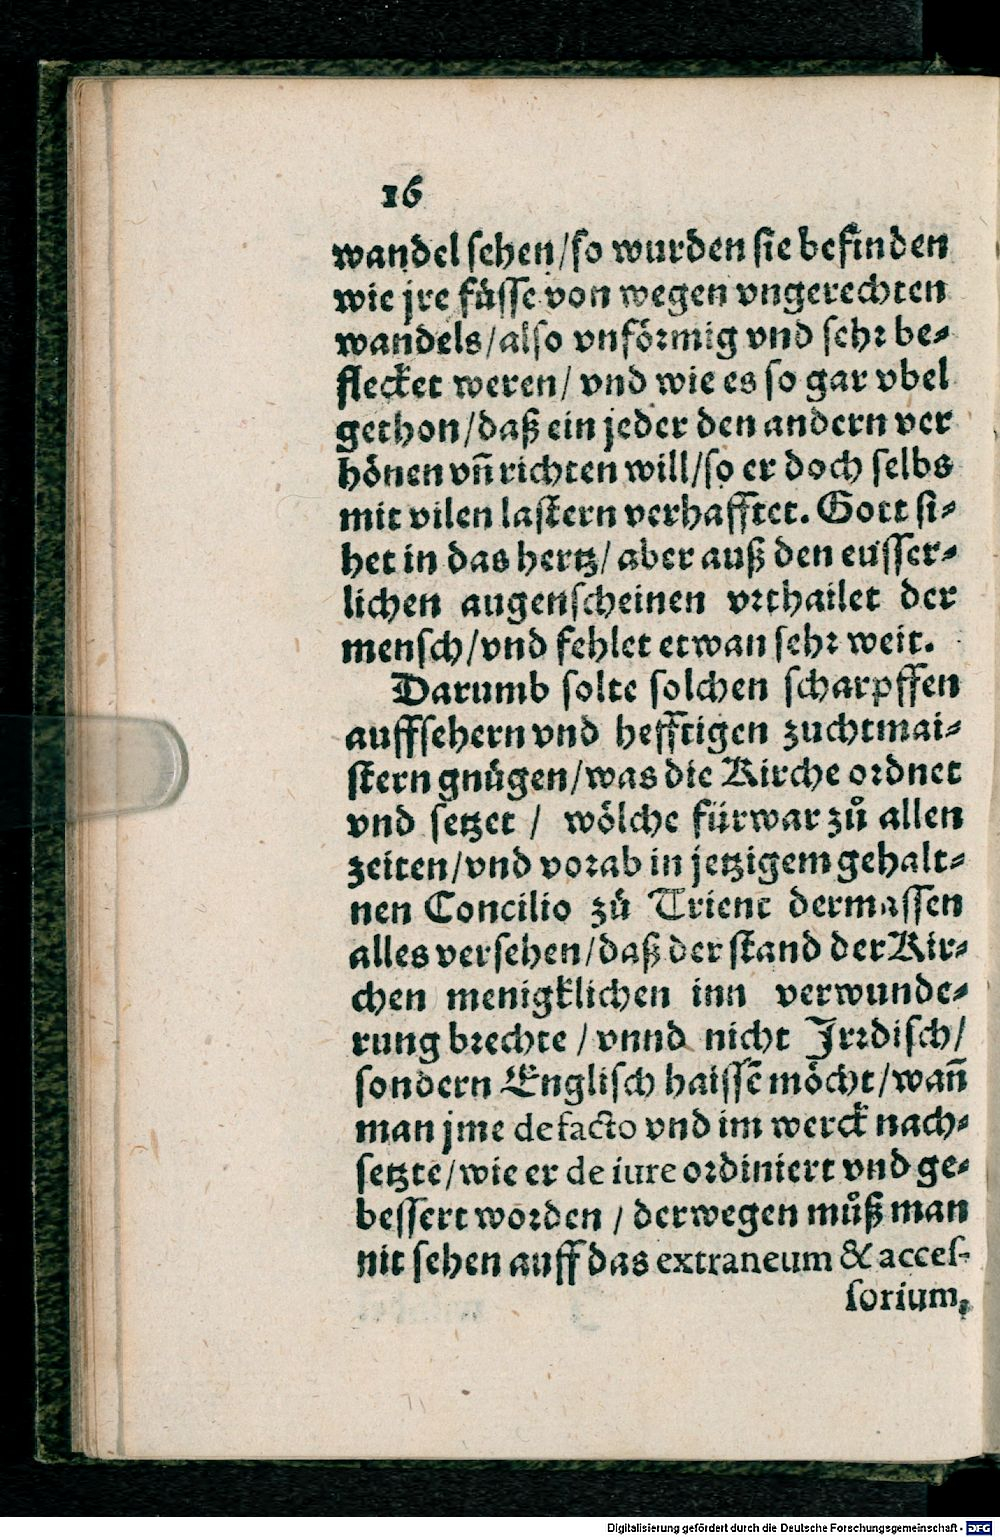 16
wandel sehen/so wurden sie befinden
wie jre füsse von wegen vngerechten
wandels/also vnförmig vnd sehr be-
flecket weren/ vnd wie es so gar vbel
gethon/daß ein jeder den andern ver
hönen vñ richten will/so er doch selbs
mit vilen lastern verhafftet. Gott si-
het in das hertz/ aber auß den eüsser-
lichen augenscheinen vrthailet der
mensch/vnd fehlet etwan sehr weit.
Darumb solte solchen scharpffen
auffsehern vnd hefftigen zuchtmai-
stern gnügen/was die Kirche ordnet
vnd setzet / wölche fürwar zů allen
zeiten/vnd vorab in jetzigem gehalt-
nen Concilio zů Trient dermassen
alles versehen/daß der stand der Kir-
chen menigklichen inn verwunde-
rung brechte / vnnd nicht Jrrdisch/
sondern Englisch haissē möcht/wañ
man jme de facto vnd im werck nach-
setzte/wie er de iure ordiniert vnd ge-
bessert worden / derwegen můß man
nit sehen auff das extraneum & acces-
sorium,
Digitalisierung gefördert durch die Deutsche Forschungsgemeinschaft - DFG